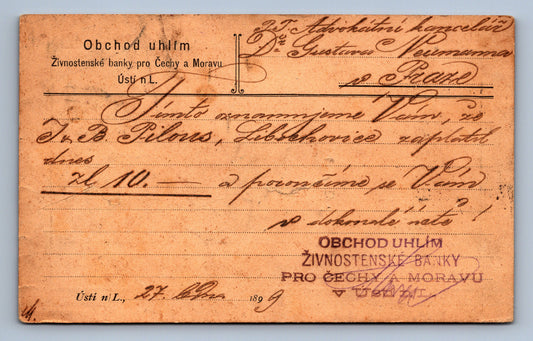 Obchod uhlím
Živnostenské banky pro Čechy a Moravu
Ústí n L.
P.T. Advokátní kancelář
Dr Gustava Neumanna
v Praze
Tímto oznamujeme Vám, že
Pilous, Libochovice zaplatil
dnes
zl. 10.— a poroučíme se Vám
v dokonalé úctě!
OBCHOD UHLÍM
ŽIVNOSTENSKÉ BANKY
PRO ČECHY A MORAVU
V
Ústí n/L., 27. 1899